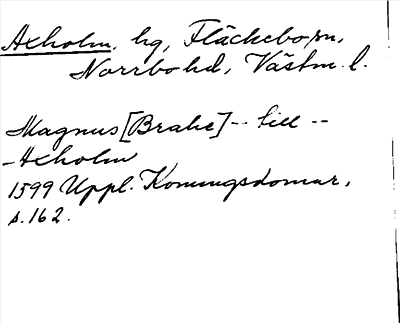 Axholm, hg, Fläckebo sn,
Norrbo hd, Västm. l.
Magnus [Brahe] -- till --
- Axholm
1599 Uppl. Konungsdomar,
s. 162.